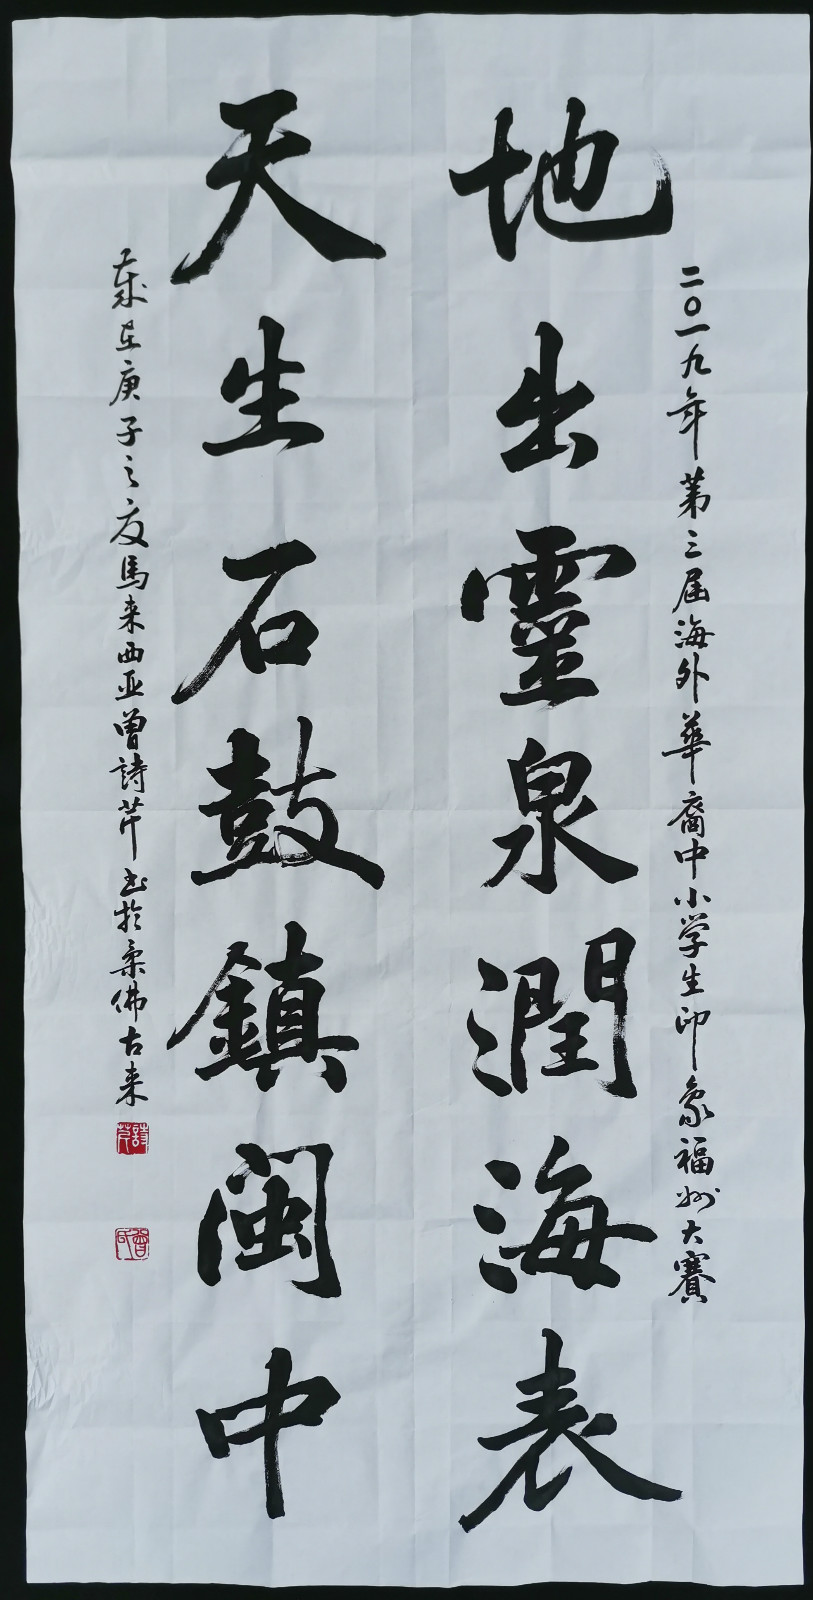 二〇一九年第三届海外華裔中小学生印象福州大賽
地出靈泉潤海表
天生石鼓鎮閩中
歲在庚子之夏馬来西亚曾詩芹书於柔佛古来
詩芹
曾氏